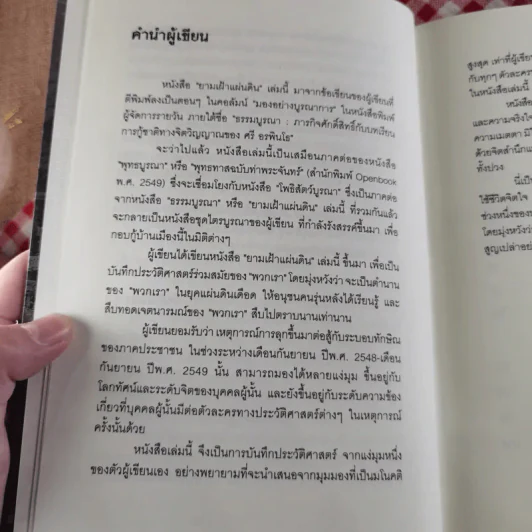 คำนำผู้เขียน
หนังสือ "ยามเฝ้าแผ่นดิน" เล่มนี้ มาจากข้อเขียนของผู้เขียนที่
ตีพิมพ์ลงเป็นตอนๆ ในคอลัมน์ "มองอย่างบูรณาการ" ในหนังสือพิมพ์
ผู้จัดการรายวัน ภายใต้ชื่อ "ธรรมบูรณา : ภารกิจศักดิ์สิทธิ์กับบทเรียน
การกู้ชาติทางจิตวิญญาณของ ศรี อรพินโธ"
จะว่าไปแล้ว หนังสือเล่มนี้เป็นเสมือนภาคต่อของหนังสือ
"พุทธบูรณา" หรือ "พุทธทาสฉบับท่าพระจันทร์" (สำนักพิมพ์ Openbook
พ.ศ. 2549) ซึ่งจะเชื่อมโยงกับหนังสือ "โพธิสัตว์บูรณา" ซึ่งเป็นภาคต่อ
จากหนังสือ "ธรรมบูรณา" หรือ "ยามเฝ้าแผ่นดิน" เล่มนี้ ที่รวมกันแล้ว
จะกลายเป็นหนังสือชุดไตรบูรณาของผู้เขียน ที่กำลังรังสรรค์ขึ้นมา เพื่อ
กอบกู้บ้านเมืองนี้ในมิติต่างๆ
ผู้เขียนได้เขียนหนังสือ "ยามเฝ้าแผ่นดิน" เล่มนี้ ขึ้นมา เพื่อเป็น
บันทึกประวัติศาสตร์ร่วมสมัยของ "พวกเรา" โดยมุ่งหวังว่า จะเป็นตำนาน
ของ "พวกเรา" ในยุคแผ่นดินเดือด ให้อนุชนคนรุ่นหลังได้เรียนรู้ และ
สืบทอดเจตนารมณ์ของ "พวกเรา" สืบไปตราบนานเท่านาน
ผู้เขียนยอมรับว่า เหตุการณ์การลุกขึ้นมาต่อสู้กับระบอบทักษิณ
ของภาคประชาชน ในช่วงระหว่างเดือนกันยายน ปีพ.ศ. 2548-เดือน
กันยายน ปีพ.ศ. 2549 นั้น สามารถมองได้หลายแง่มุม ขึ้นอยู่กับ
โลกทัศน์และระดับจิตของบุคคลผู้นั้น และยังขึ้นอยู่กับระดับความข้อง
เกี่ยวที่บุคคลผู้นั้นมีต่อตัวละครทางประวัติศาสตร์ต่างๆ ในเหตุการณ์
ครั้งนั้นด้วย
หนังสือเล่มนี้ จึงเป็นการบันทึกประวัติศาสตร์ จากแง่มุมหนึ่ง
ของตัวผู้เขียนเอง อย่างพยายามที่จะนำเสนอจากมุมมองที่เป็นมโนคติ
สูงสุด เท่าที่ผู้เขีย
กับทุกๆ ตัวละคร
ในหนังสือเล่มนี้
และความจริงใจ
ความเมตตา มิใ
ด้วยจิตสำนึกแ
ทั้งปวง
นี่เป็
ใช้ชีวิตจิตใจ
ช่วงหนึ่งของ
โดยมุ่งหวังว่า
สูญเปล่าอย่